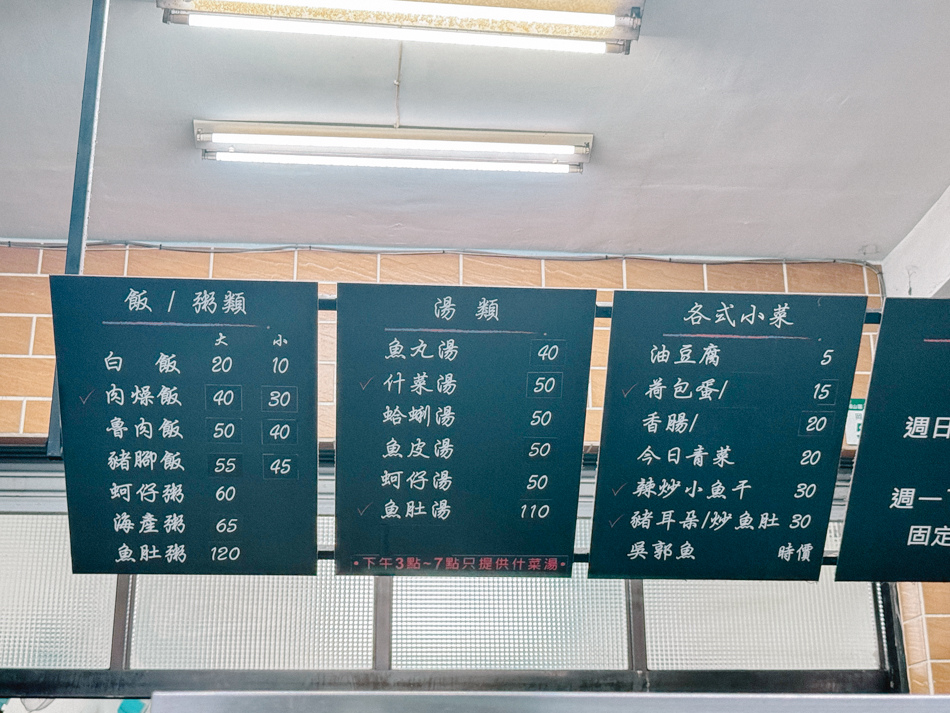 飯 / 粥類
大 小
白 飯 20 10
肉燥飯 40 30
魯肉飯 50 40
豬腳飯 55 45
蚵仔粥 60
海產粥 65
魚肚粥 120
湯 類
魚丸湯 40
什菜湯 50
蛤蜊湯 50
魚皮湯 50
蚵仔湯 50
魚肚湯 110
•下午3點~7點只提供什菜湯•
各式小菜
油豆腐 5
荷包蛋/ 15
香腸/ 20
今日青菜 20
辣炒小魚干 30
豬耳朵/炒魚肚 30
吳郭魚 時價
週日
週一
固定